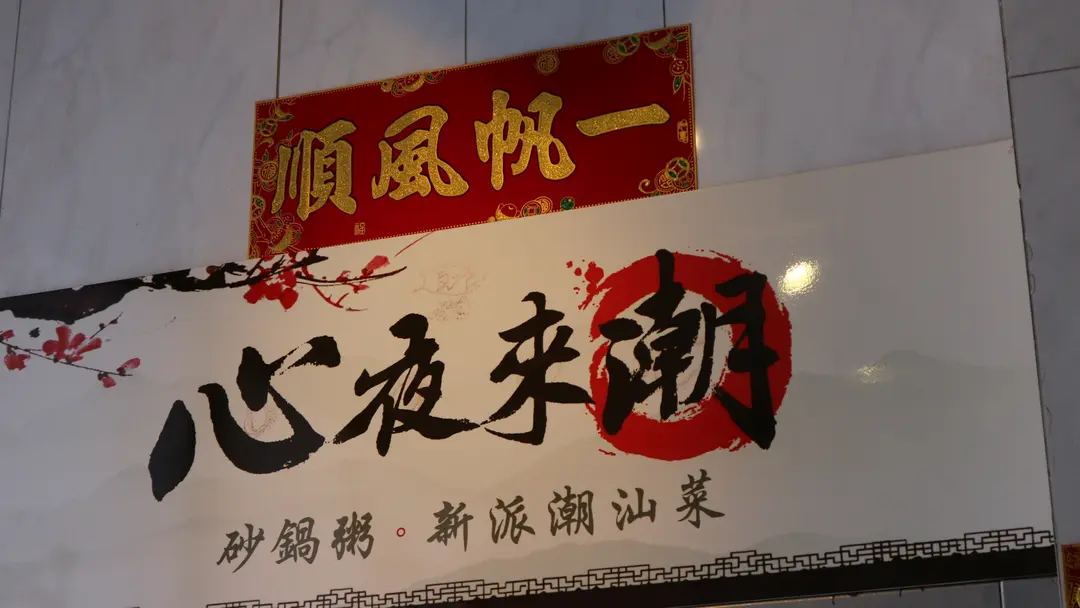 一帆風順
心夜來潮
砂鍋粥。新派潮汕菜